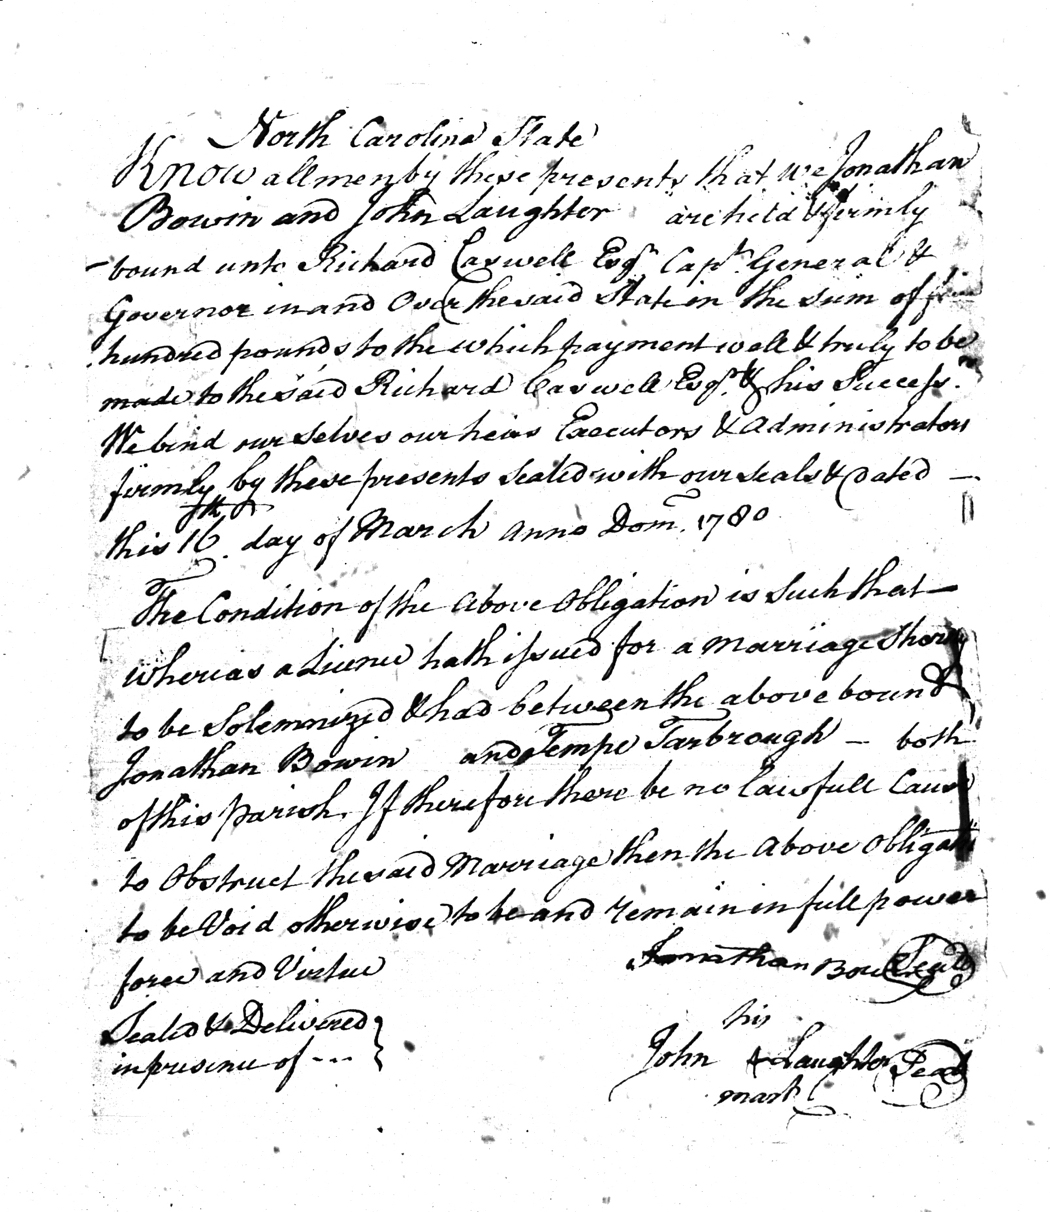 North Carolina State
Know all men by these presents that we Jonathan
Bowin and John Laughter are held & firmly
bound unto Richard Caswell Esqr. Capt. General &
Governor in and Over the said State in the sum of
hundred pounds to the which payment well & truly to be
made to the said Richard Caswell Esqr. & his Success.rs
We bind our selves our heirs Executors & Administrators
firmly by these presents Sealed with our seals & Dated —
this 16th. day of March Anno Dom. 1780
The Condition of the Above Obligation is Such that —
whereas a Licence hath issued for a Marriage Shortly
to be Solemnized & had between the above bound
Jonathan Bowin and Tempe Tarbrough — both
of this Parish. If therefore there be no Lawfull Cause
to Obstruct the said Marriage then the Above Obligati
to be Void otherwise to be and remain in full power
force and Virtue
Jonathan Bowin Seal
Sealed & Delivered
in presence of ---
his
John Laughter Seal
mark